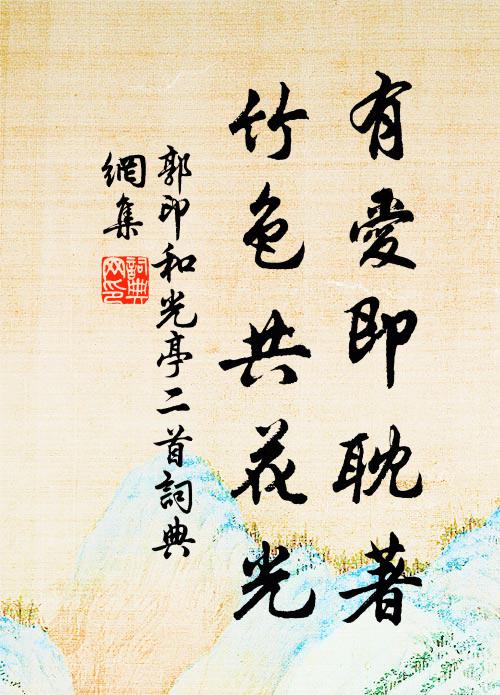 有愛即耽著
竹色共花光
郭印和光亭二首詞典
網集
詞典網印